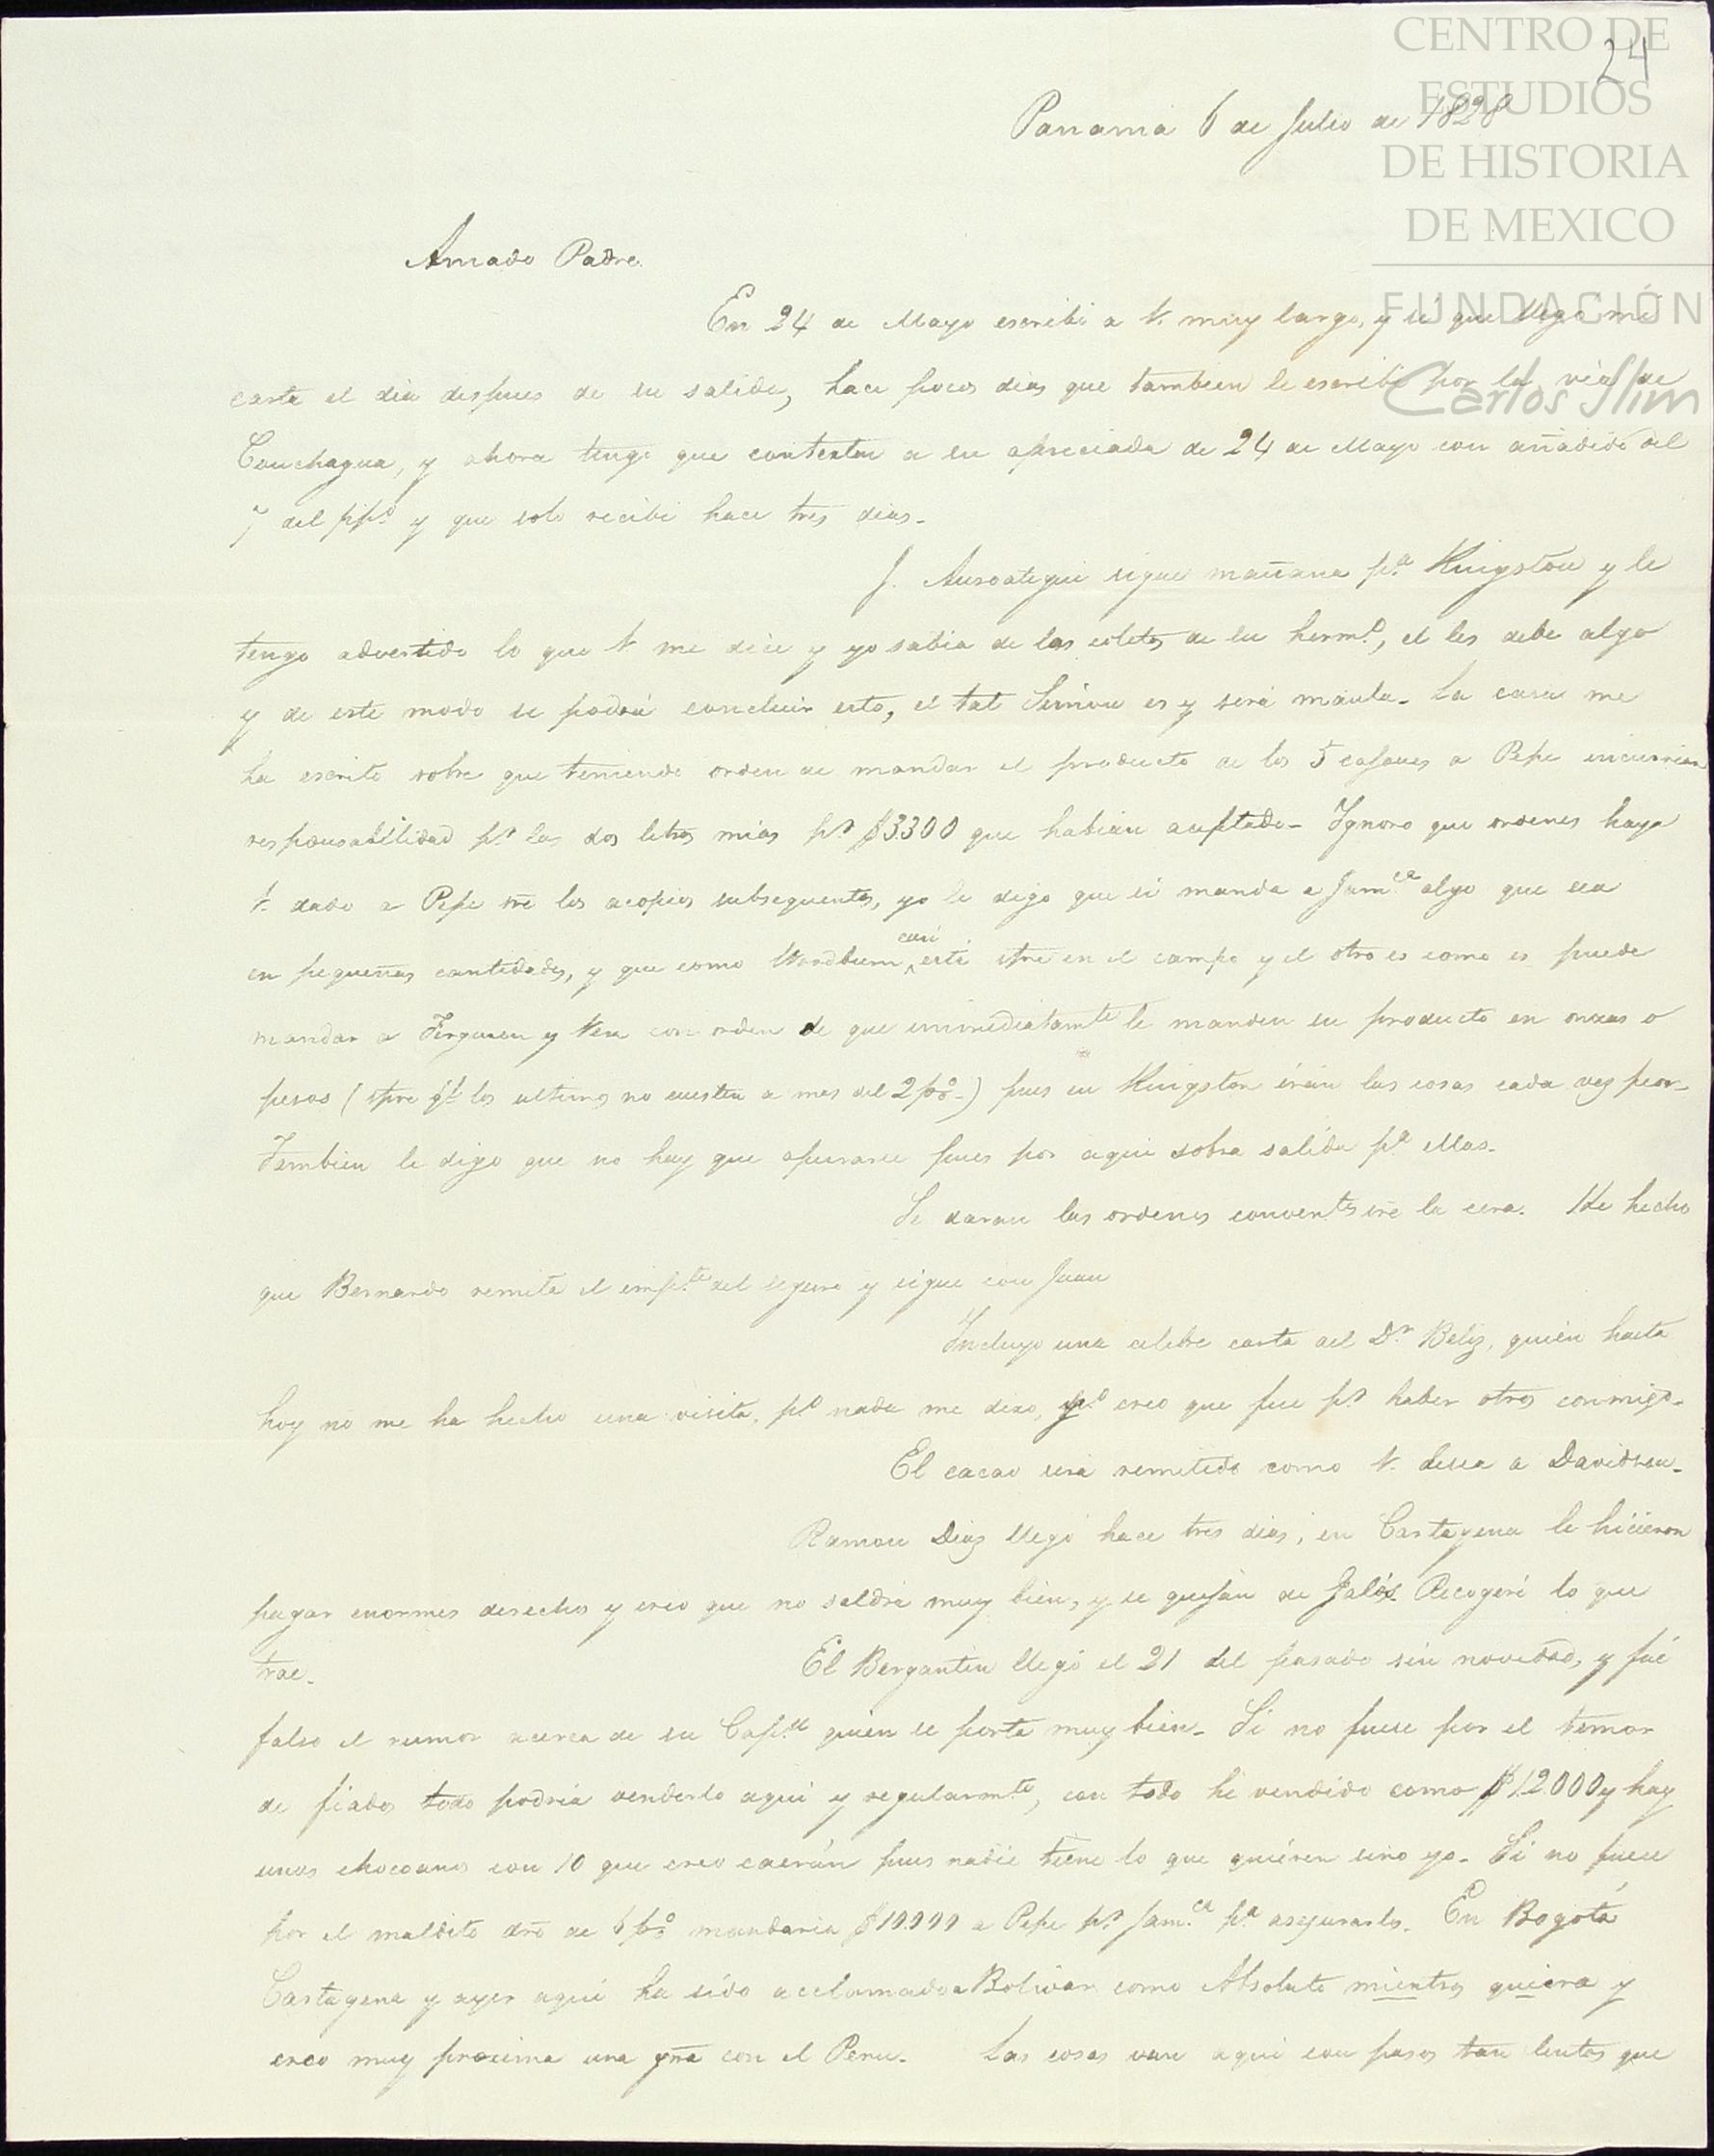 CENTRO DE
ESTUDIOS
DE HISTORIA
DE MEXICO
FUNDACIÓN
Carlos Slim
24
Panamá 6 de Julio de 1828
Amado Padre.
En 24 de Mayo escribi a V. muy largo, y sé que llegó mi
carta el dia despues de su salida, hace pocos dias que tambien le escribi por la via de
Conchagua, y ahora tengo que contestar a su apreciada de 24 de Mayo con añadido del
7 del pp.º y que solo recibi hace tres dias.
J. Ansoategui sigue mañana p.ª Kingston y le
tengo advertido lo que V. me dice y yo sabia de las de su herm.º, el les debe algo
y de este modo se podrá concluir esto, el tal Simon es y será maula. La casa me
ha escrito sobre que teniendo orden de mandar el producto de los 5 cajones a Pepe incurrian
responsabilidad p.r las dos letras mias p.r $3300 que habian aceptado. Ignoro que ordenes haya
V. dado a Pepe sre los acopios subsequentes, yo le digo que si manda a Jam.ca algo que sea
en pequeñas cantidades, y que como casi está spre en el campo y el otro es como es puede
mandar a Ferguson y Vera con orden de que inmediatam.te le manden su producto en onzas o
pesos (spre q.e los ultimos no cuesten a mas del 2 p%) pues en Kingston irán las cosas cada vez peor.
Tambien le digo que no hay que apurarse pues por aqui sobra salida p.ª ellas.
Se daran las ordenes convent.es sre la cera. He hecho
que Bernardo remita el imp.te del seguro y sigue con Juan
Incluyo una celebre carta del D.r Beliz, quién hasta
hoy no me ha hecho una visita, p.º nada me dixo, p.º creo que fue p.r haber otros conmigo.
El cacao será remitido como V. desea a Davidson.
Ramon Diaz llegó hace tres dias, en Cartagena le hicieron
pagar enormes derechos y creo que no saldrá muy bien, y se quejan de Recogeré lo que
trae.
El Bergantin llegó el 21 del pasado sin novedad, y fué
falso el rumor acerca de su Cap.n quién se porta muy bien. Si no fuese por el temor
de fiados todo podria venderlo aqui y regularm.te, con todo hé vendido como $12000 y hay
unos chocoanos con 10 que creo caerán pues nadie tiene lo que quieren sino yo. Si no fuese
por el maldito dro de 6 p% mandaria $10.000 a Pepe p.r Jam.ca p.ª asegurarlo. En Bogotá
Cartagena y ayer aqui ha sido aclamado a Bolivar como Absoluto mientras quiera y
creo muy proxima una grra con el Peru. Las cosas van aqui con pasos tan lentos que